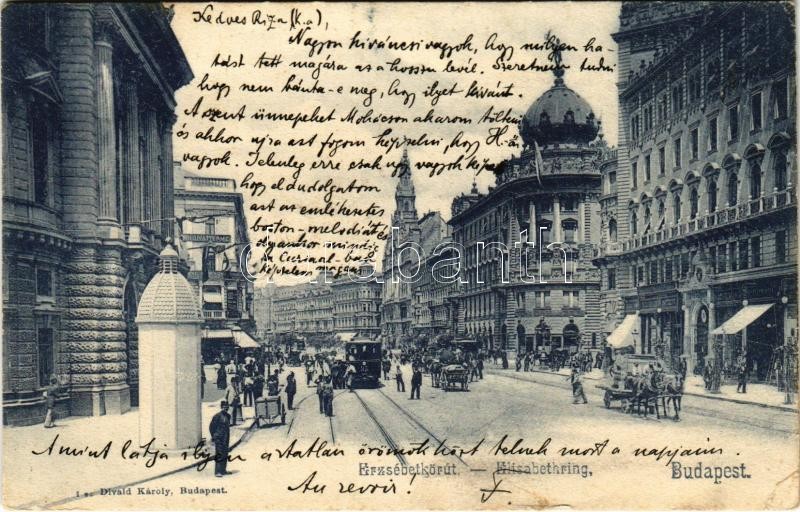 Kedves Riza (k.a),
Nagyon kiváncsi vagyok, hogy milyen ha-
tást tett magára az a hosszu levél. Szeretném tudni
hogy nem bánta-e meg, hogy ilyet kivánt.
A szent ünnepeket Mohácson akarom tölteni
és akkor ujra azt fogom képzelni, hogy H-n
vagyok. Jelenleg erre csak ugy vagyok képes
hogy eldudolgatom
azt az emlékezetes
boston-melodiát és
olyankor mindig
képzelem magam
darabanth
Amint látja ilyen ártatlan örömök közt telnek most a napjaim.
Erzsébetkörút. — Elisabethring. Budapest.
Au revoir!
Divald Károly, Budapest.